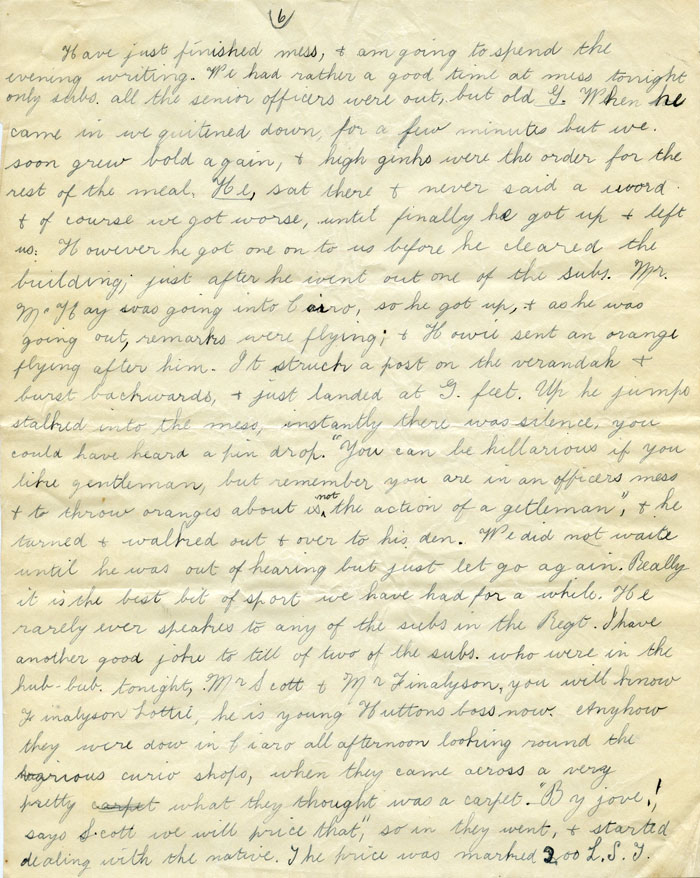 6
Have just finished mess, & am going to spend the
evening writing. We had rather a good time at mess tonight
only subs. all the senior officers were out, but old G. When he
came in we quitened down, for a few minutes but we.
soon grew bold again, & high ginks were the order for the
rest of the meal. He, sat there & never said a word
& of course we got worse, until finally he got up & left
us. However he got one on to us before he cleared the
building; just after he went out one of the subs. Mr.
McHay was going into Cairo, so he got up, & as he was
going out, remarks were flying; & Howie sent an orange
flying after him. It struck a post on the verandah &
burst backwards, & just landed at G. feet. Up he jumps
stalked into the mess, instantly there was silence, you
could have heard a pin drop. "You can be hillarious if you
like gentleman, but remember you are in an officers mess
& to throw oranges about is not the action of a getleman", & he
turned & walked out & over to his den. We did not waite
until he was out of hearing but just let go again. Really
it is the best bit of sport we have had for a while. He
rarely ever speakes to any of the subs in the Regt. I have
another good joke to till of two of the subs. who were in the
hub-bub. tonight, Mr Scott & Mr Finalyson, you will know
Finalyson Lottie, he is young Huttons boss now. Anyhow
they were dow in Ciaro all afternoon looking round the
various curio shops, when they came across a very
pretty carpet what they thought was a carpet. "By jove!,
says Scott we will price that", so in they went, & started
dealing with the native. The price was marked 200 L.S.T.